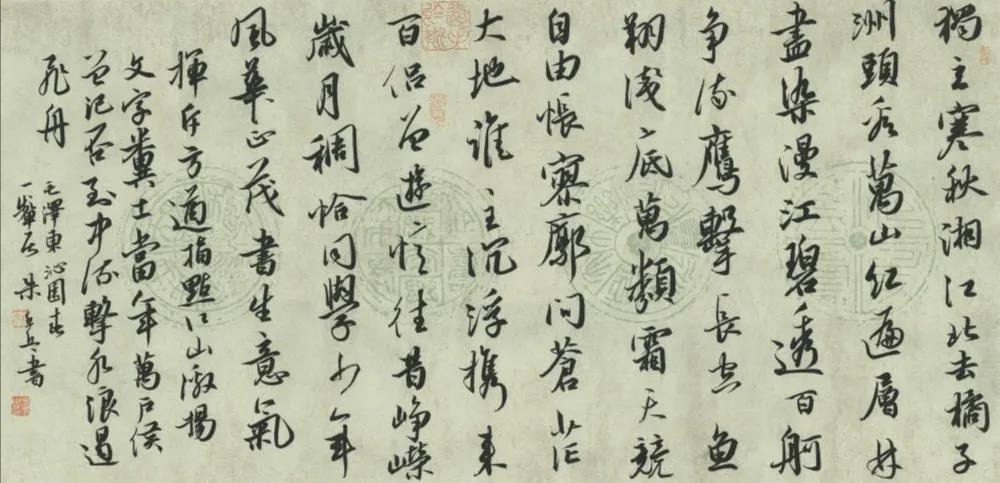 獨立寒秋湘江北去橘子
洲頭看萬山红遍層林
盡染漫江碧透百舸
争流鷹擊長空魚
翔淺底萬類霜天競
自由悵寥廓问蒼茫
大地誰主沉浮攜来
百侣曾遊憶往昔崢嶸
歲月稠恰同學少年
風華正茂書生意氣
揮斥方遒指點江山激揚
文字糞土當年萬户侯
曾记否到中流擊水浪遏
飛舟
毛澤東沁園春
一居朱兵書